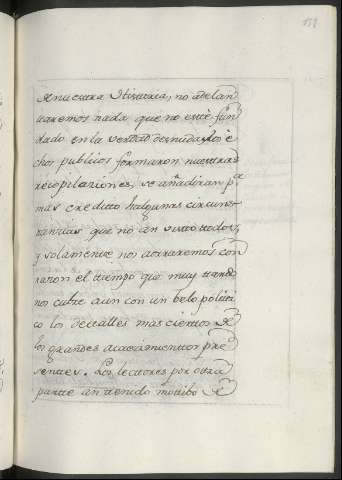 á nuestra Historia, no adelan
taremos nada que no esté fun
dado en la verdad desnuda, los è
chos publicos formaron nuestras
recopilaziones, se añadiran p.ª
mas creditto halgunas circuns
tanzias que no an visto todos,
y solamente nos atraremos con
razon el tiempo que muy tarde
nos cubre aun con un belo politi
co los dettalles mas ciertos de
los grandes acaecimientos pre
sentes. Los lectores por otra
partte an tenido mottibo de